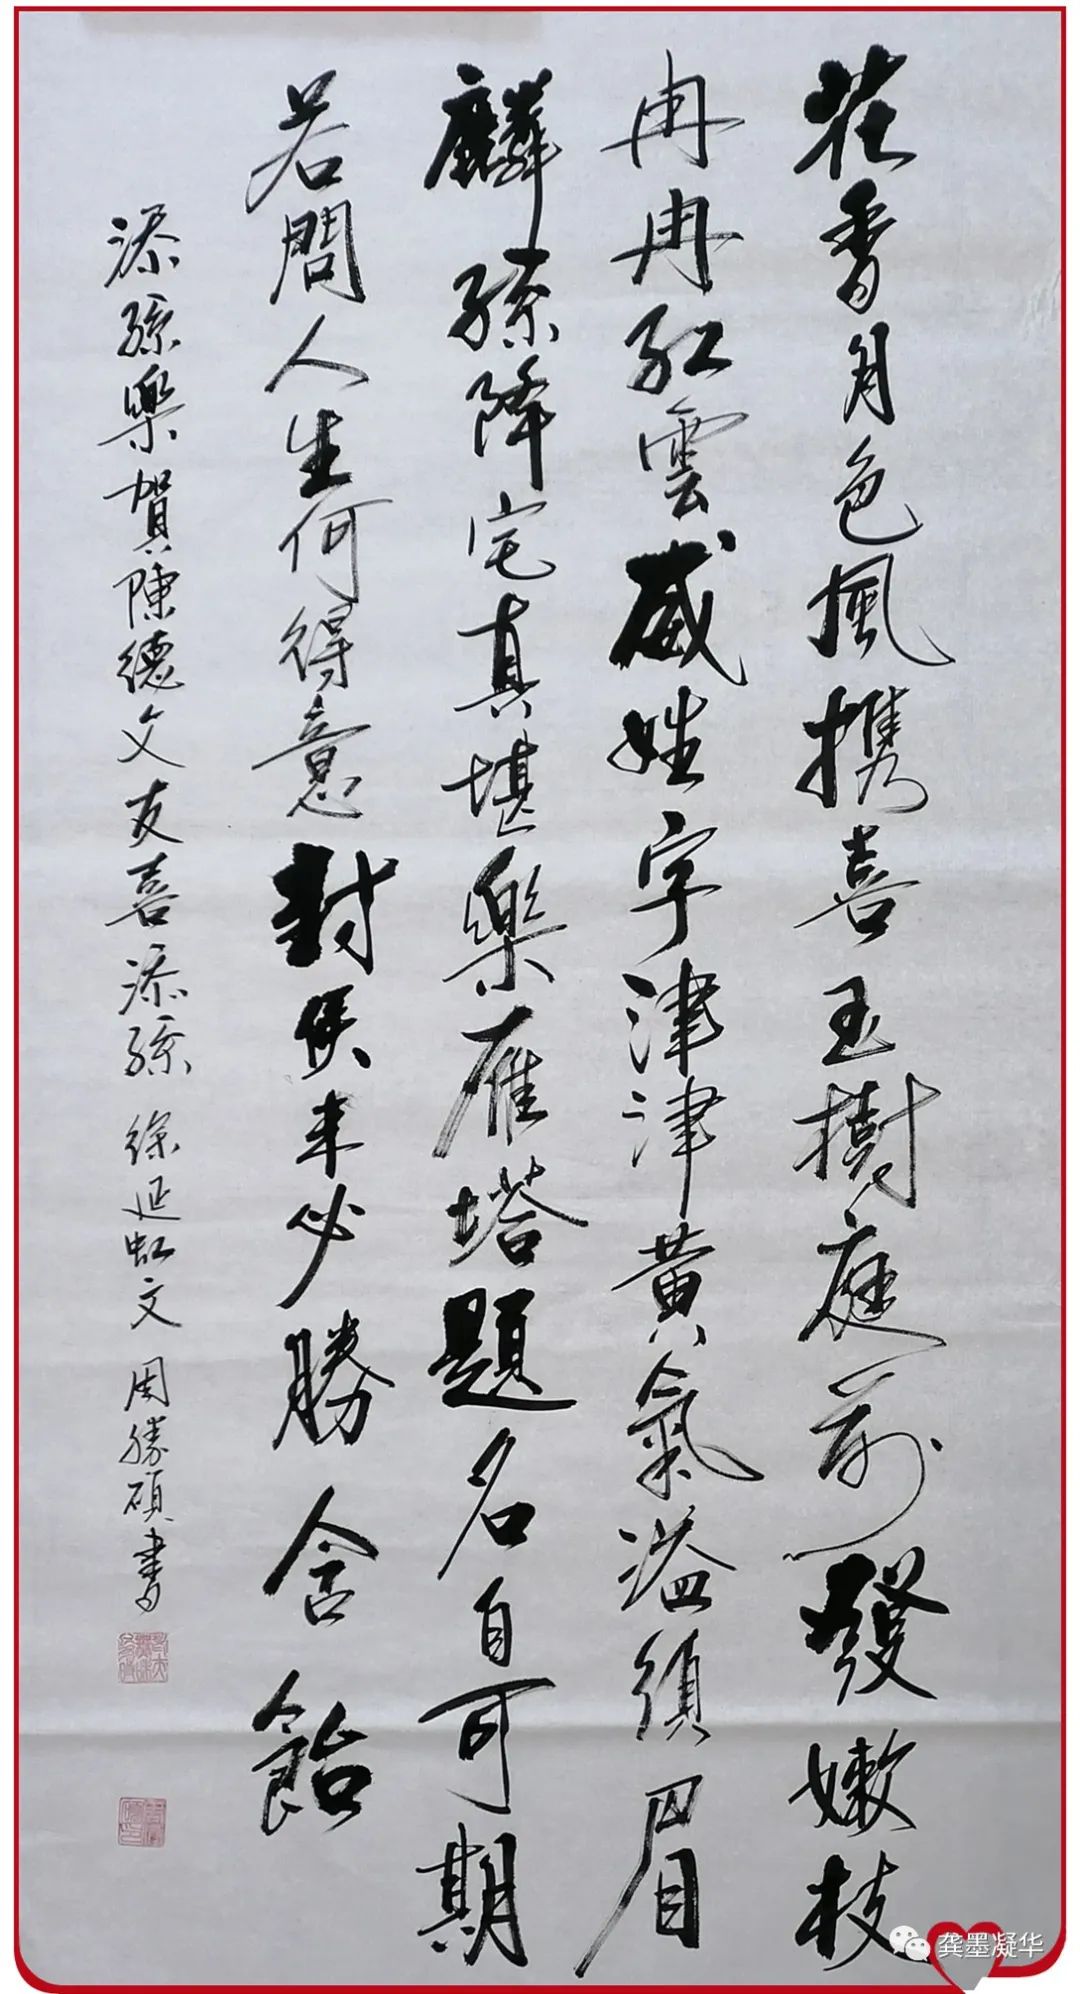 花香月色風携喜玉樹庭前發嫩枝
冉冉紅雲盛姓字津津黄氣溢須眉
麟孫降宅真堪樂雁塔題名自可期
若問人生何得意封侯未必勝含飴
添孫樂賀陳德文友喜添孫 徐延虹文 周勝碩書
龚墨凝华